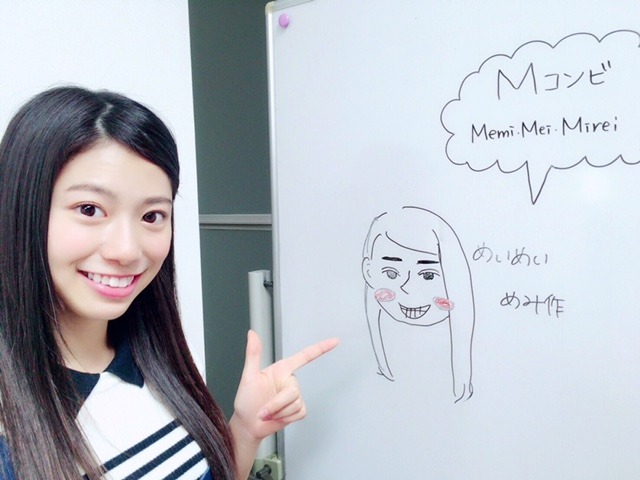 Mコンビ
Memi・Mei・Mirei
めいめい
めみ作